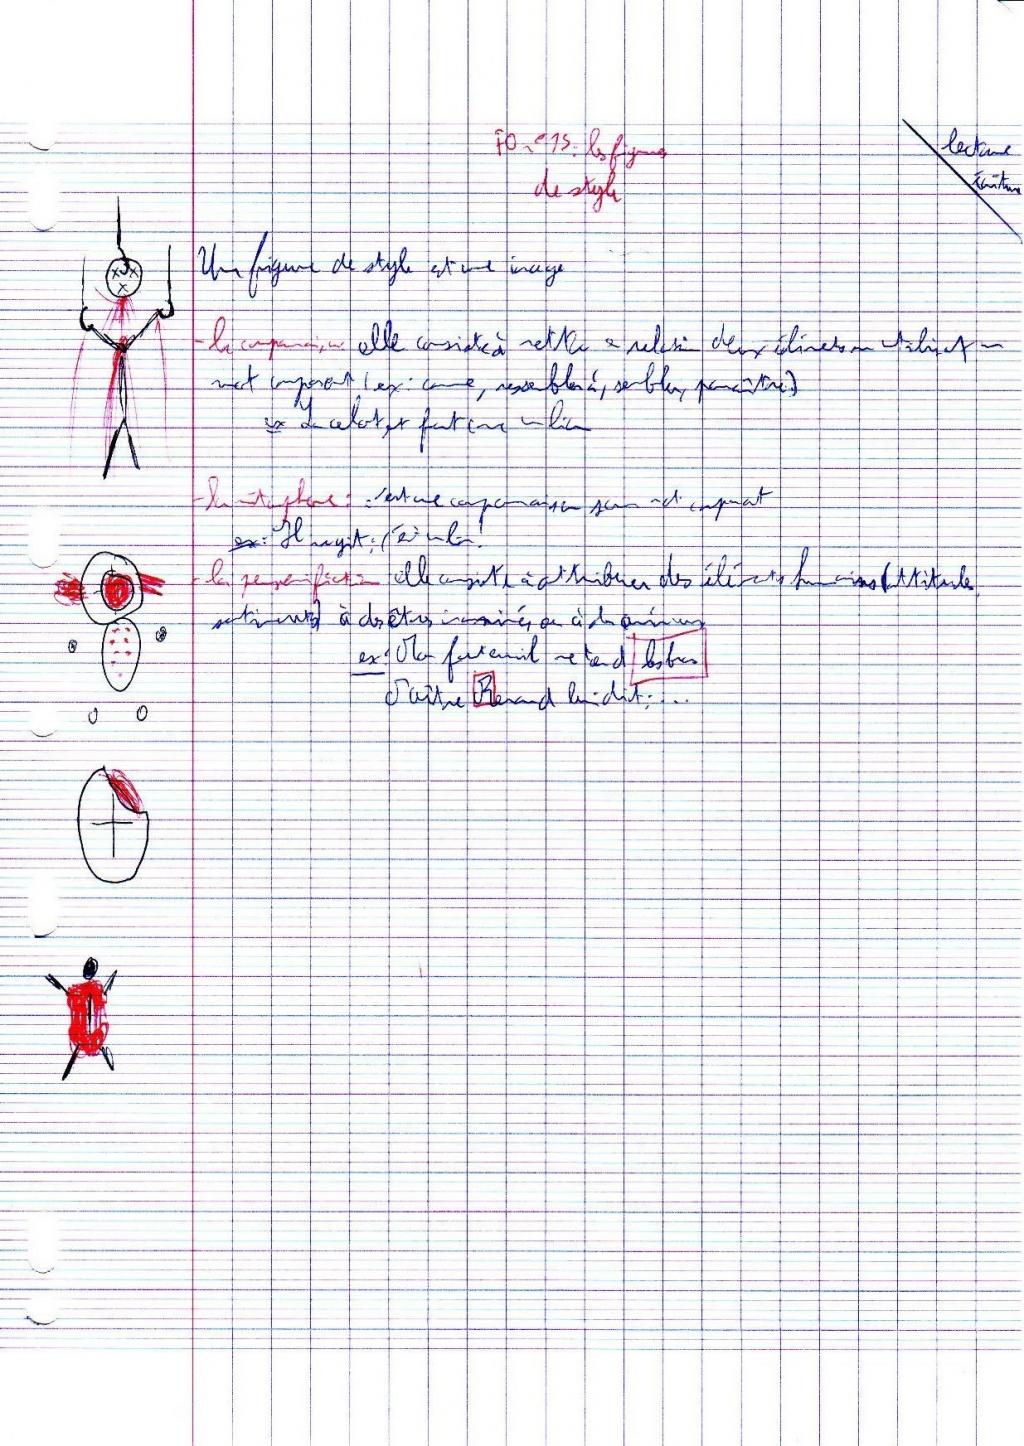 FO n°15: les figures
de style
lecture
écriture
Une figure de style est une image
- la comparaison: elle consiste à mettre en relation deux éléments en utilisant un
mot comparant (ex: comme, ressembler à, sembler, paraître)
ex est fort comme un lion
- la métaphore: c'est une comparaison sans mot comparant
ex: Il rugit; c'est un lion!
- la personnification elle consiste à attribuer des éléments humains (attitude,
sentiments) à des êtres inanimés, ou à des animaux
ex: Mon fauteuil me tend les bras
Maître Renard lui dit: ...